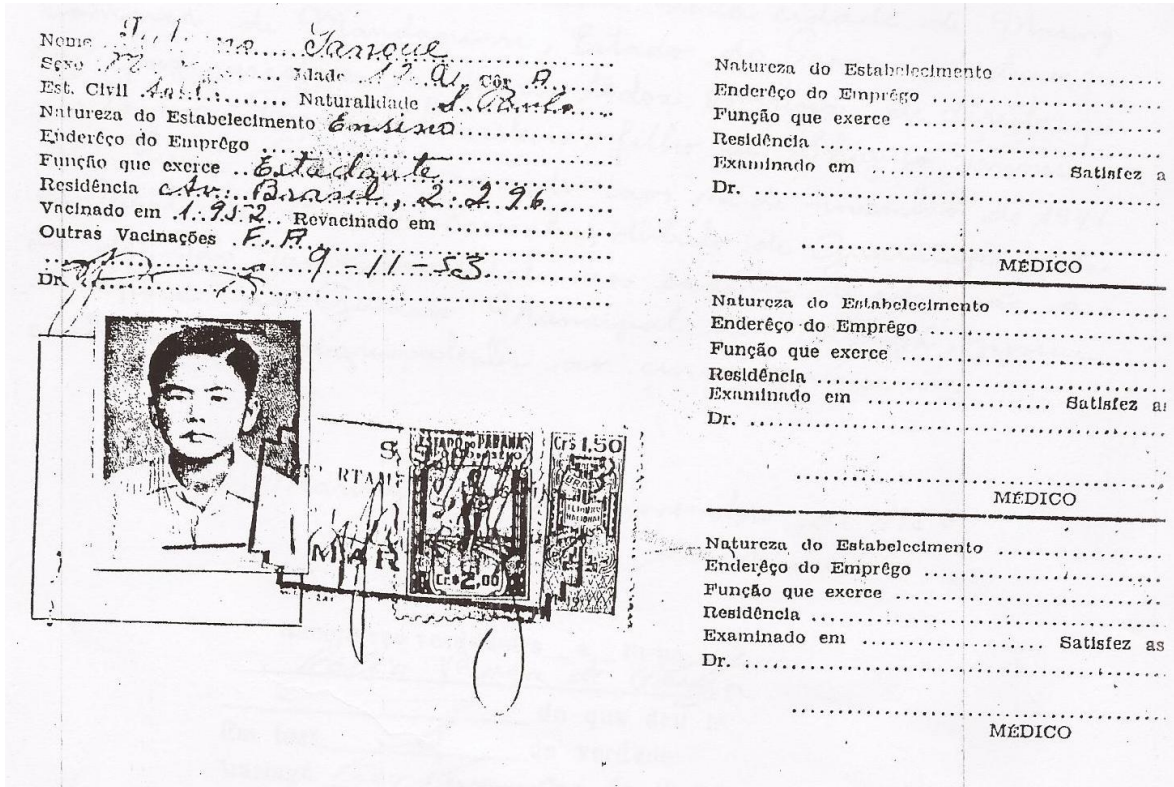 Nome ............ Tanque
Sexo M ........ Idade 12 a. Côr A.
Est. Civil Solt. ........ Naturalidade S. Paulo
Natureza do Estabelecimento Ensino
Enderêço do Emprêgo ........
Função que exerce .. Estudante
Residência Av. Brasil, 2.296
Vacinado em 1.952 Revacinado em ........
Outras Vacinações F.A.
9-11-53
Dr.
S
RTAM
MAR
ESTADO DO PARANÁ
Cr$ 2,00
Cr$ 1,50
BRASIL
Natureza do Estabelecimento ........
Enderêço do Emprêgo ........
Função que exerce ........
Residência ........
Examinado em ........ Satisfez a
Dr. ........
MÉDICO
Natureza do Estabelecimento ........
Enderêço do Emprêgo ........
Função que exerce ........
Residência ........
Examinado em ........ Satisfez as
Dr. ........
MÉDICO
Natureza do Estabelecimento ........
Enderêço do Emprêgo ........
Função que exerce ........
Residência ........
Examinado em ........ Satisfez as
Dr. ........
MÉDICO